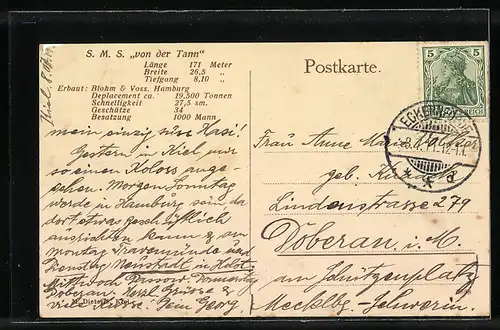 S. M. S. „von der Tann“
Länge 171 Meter
Breite 26,5 „
Tiefgang 8,10 „
Erbaut: Blohm & Voss, Hamburg
Deplacement ca. 19,500 Tonnen
Schnelligkeit 27,5 sm.
Geschütze 34
Besatzung 1000 Mann
Kiel,
mein einzig süss Hasi!
Gestern in Kiel mir
so einen Koloss ange
sehen. Morgen Sonntag
werde in Hamburg sein, da
dort etwas geschäftlich
ausrichten kann &, am
Montag Travemünde und
Dienstag Neustadt in Holst.
Mittwoch Donnerstag
Doberan. Herzl Grüsse &
viele Küsse. Dein Georg.
Postkarte.
5 5
REICH
ECKERNFÖRDE
8.4.11.12-1N.
* * a
Frau Anne Marie
geb.
Lindenstrasse 279
Doberan i. M.
am Schützenplatz
Mecklbg-Schwerin.